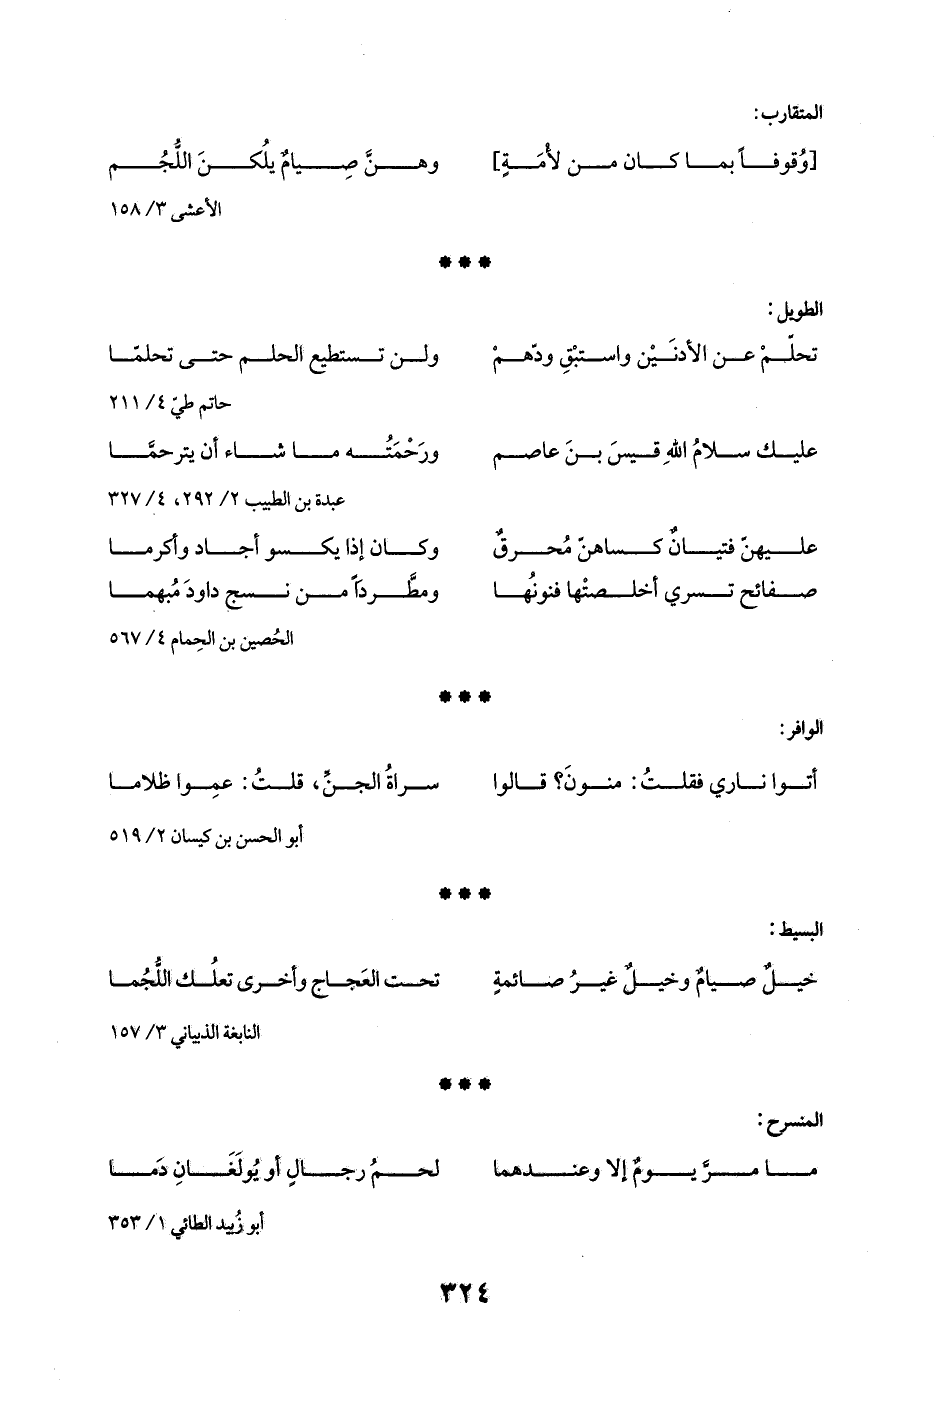 المتقارب:
[وُقوفاً بما كان من لأُمَةٍ] وهنَّ صِيامٌ يلُكنَ اللُّجُم
الأعشى ٣/ ١٥٨
***
الطويل:
تحلّمْ عن الأدنَيْن واستبْقِ ودّهمْ ولن تستطيع الحلم حتى تحلمّا
حاتم طيّ ٤/ ٢١١
عليك سلامُ اللهِ قيسَ بنَ عاصم ورَحْمَتُه ما شاء أن يترحمَّا
عبدة بن الطبيب ٢/ ٢٩٢، ٤/ ٣٢٧
عليهنّ فتيانٌ كساهنّ مُحرقٌ وكان إذا يكسو أجاد وأكرما
صفائح تسري أخلصتْها فنونُها ومطَّرداً من نسج داودَ مُبهما
الحُصين بن الحِمام ٤/ ٥٦٧
***
الوافر:
أتوا ناري فقلتُ: منونَ؟ قالوا سراةُ الجنِّ، قلتُ: عمِوا ظلاما
أبو الحسن بن كيسان ٢/ ٥١٩
***
البسيط:
خيلٌ صيامٌ وخيلٌ غيرُ صائمةٍ تحت العَجاج وأخرى تعلُك اللُّجُما
النابغة الذبياني ٣/ ١٥٧
***
المنسرح:
ما مرَّ يومٌ إلا وعندهما لحمُ رجالٍ أو يُولَغَانِ دَمَا
أبو زُبيد الطائي ١/ ٣٥٣
٣٢٤